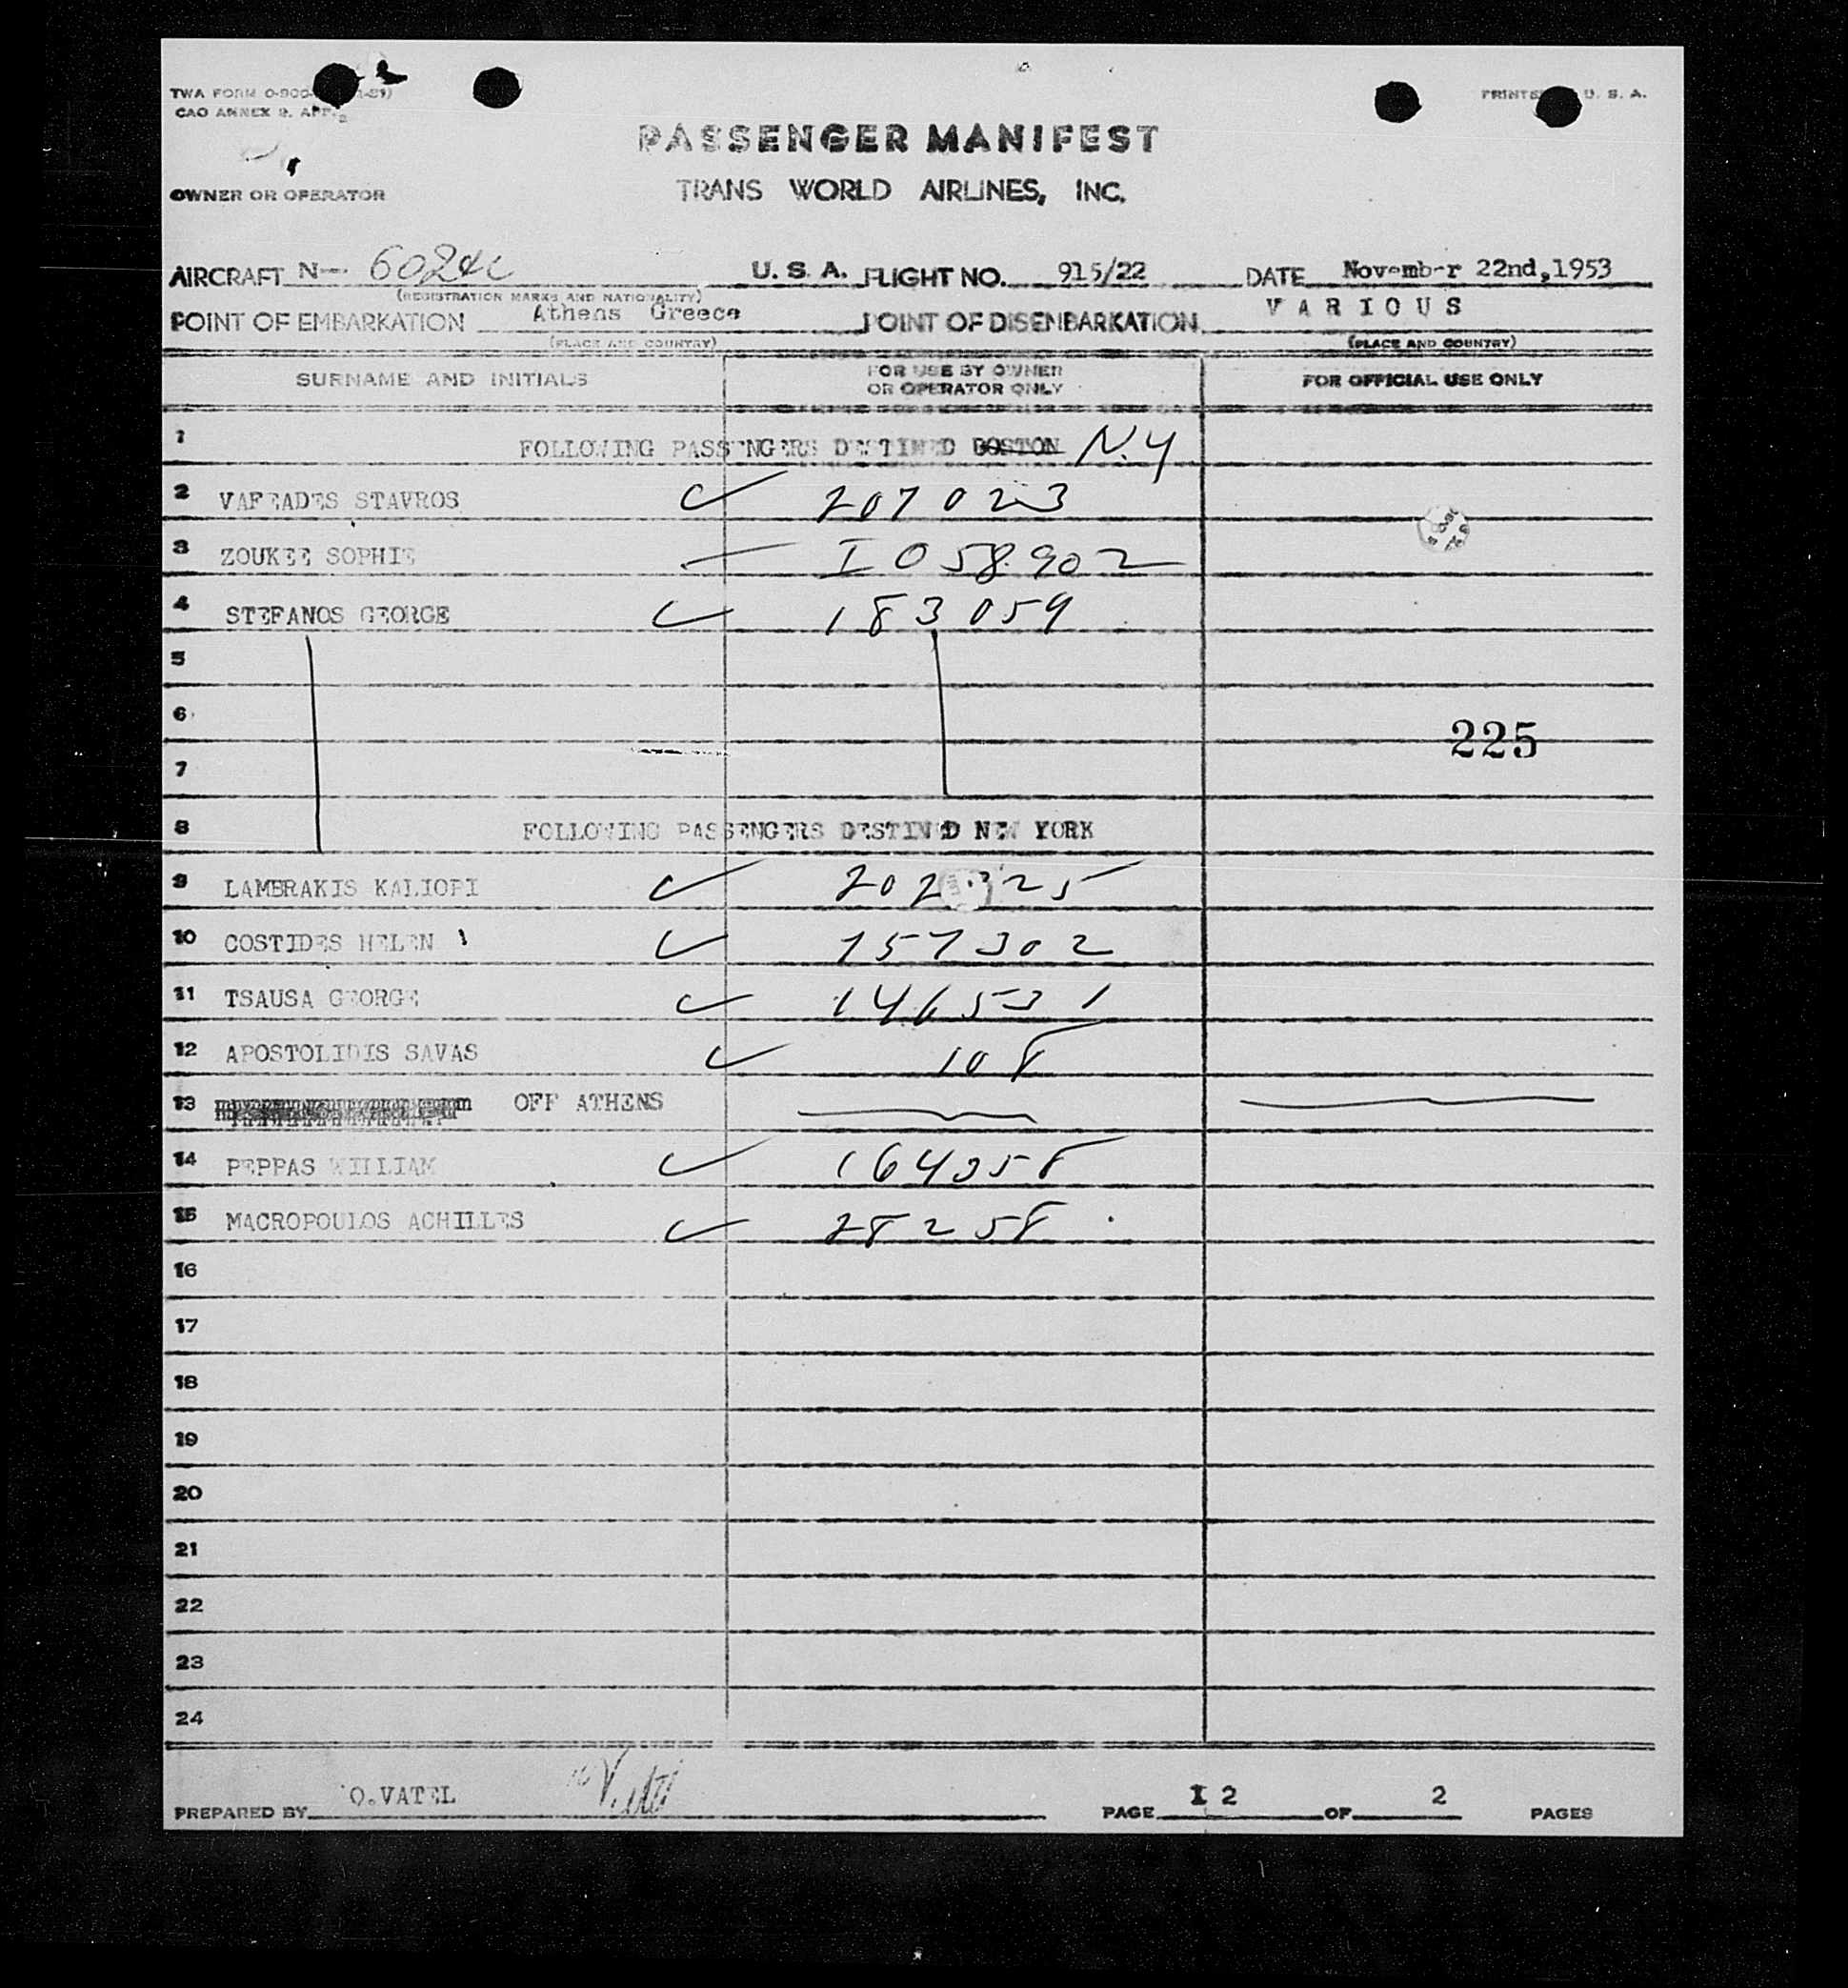 TWA FORM 0-900
PRINTED U. S. A.
CAO ANNEX 9. APP.
PASSENGER MANIFEST
OWNER OR OPERATOR
TRANS WORLD AIRLINES, INC.
AIRCRAFT N-- 6024C U. S. A. FLIGHT NO. 915/22 DATE November 22nd,1953
(REGISTRATION MARKS AND NATIONALITY)
POINT OF EMBARKATION Athens Greece POINT OF DISENBARKATION VARIOUS
(PLACE AND COUNTRY) (PLACE AND COUNTRY)
SURNAME AND INITIALS FOR USE BY OWNER OR OPERATOR ONLY FOR OFFICIAL USE ONLY
1 FOLLOWING PASSENGERS DESTINED BOSTON N.Y
2 VAFEADES STAVROS 207023
3 ZOUKEE SOPHIE I 058902
4 STEFANOS GEORGE 183059
5
6
225
7
8 FOLLOWING PASSENGERS DESTINED NEW YORK
9 LAMBRAKIS KALIOPI
10 COSTIDES HELEN 157302
11 TSAUSA GEORGE 146531
12 APOSTOLIDIS SAVAS 108
13 OFF ATHENS
14 PEPPAS WILLIAM 164358
15 MACROPOULOS ACHILLES 28258
16
17
18
19
20
21
22
23
24
PREPARED BY O.VATEL PAGE I 2 OF 2 PAGES